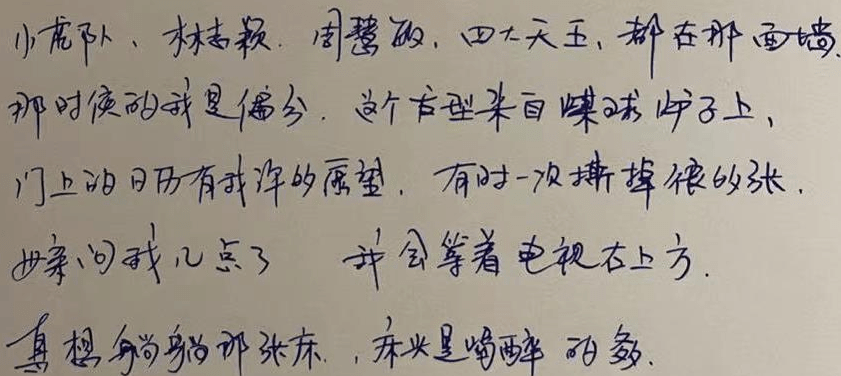 小虎队、林志颖、周慧敏、四大天王、都在那面墙.
那时候的我是偏分.这个发型来自煤球炉子上、
门上的日历有我许的愿望.有时一次撕掉很多张.
母亲问我几点了 我会等着电视右上方.
真想躺躺那张床.,床头是喝醉的爹.